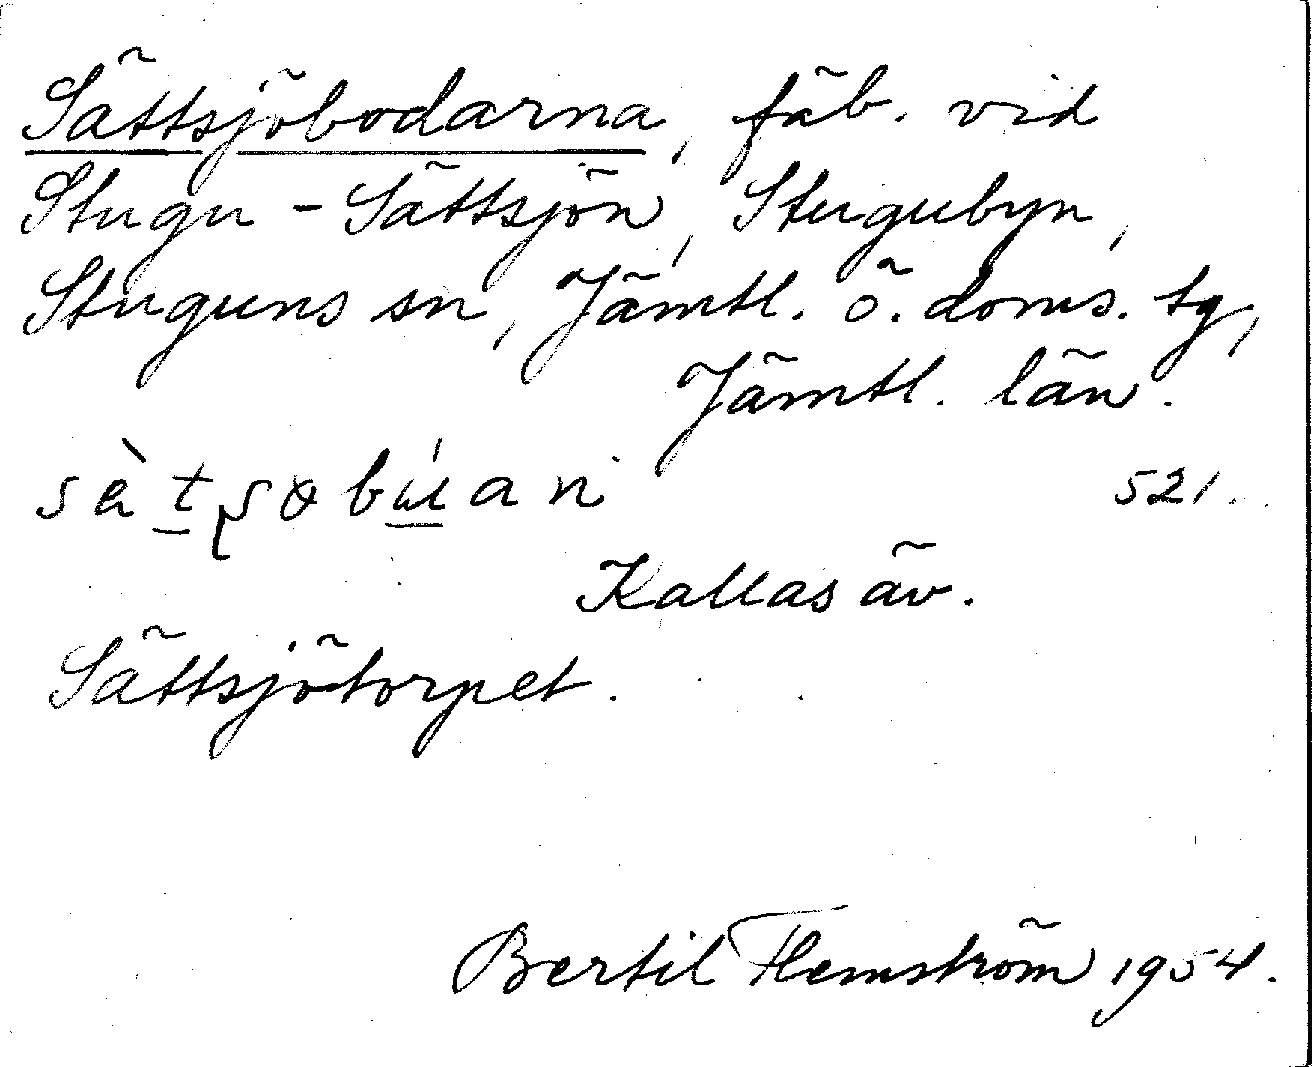 Sättsjöbodarna, fäb. vid
Stugu-Sättsjön, Stugubyn,
Stuguns sn, Jämtl. ö. doms. tg,
Jämtl. län.
521.
Kallas äv.
Sättsjötorpet.
Bertil Flemström 1954.